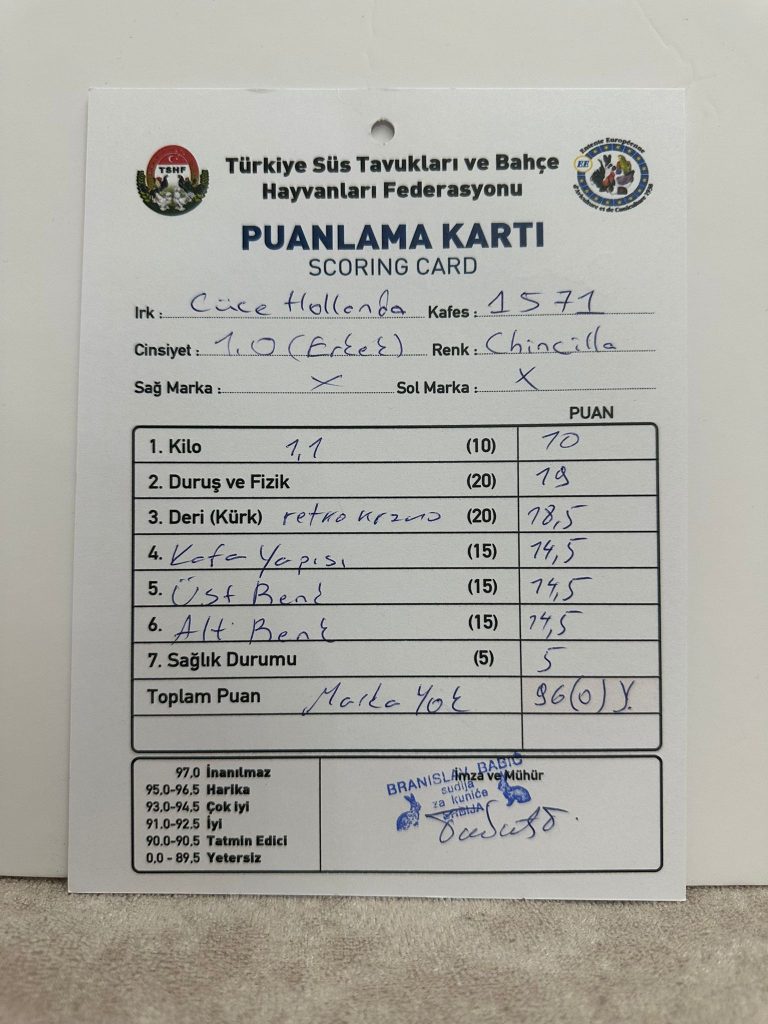 TSHF
Türkiye Süs Tavukları ve Bahçe
Hayvanları Federasyonu
Entente Européenne
EE
d'Aviculture et de Cuniculture 1938
PUANLAMA KARTI
SCORING CARD
Irk : Cüce Hollanda Kafes : 1571
Cinsiyet : 1.0 (Erkek) Renk : Chincilla
Sağ Marka : X Sol Marka : X
PUAN
1. Kilo 1,1 (10) 10
2. Duruş ve Fizik (20) 19
3. Deri (Kürk) retko krzno (20) 18,5
4. Kafa Yapısı (15) 14,5
5. Üst Renk (15) 14,5
6. Alt Renk (15) 14,5
7. Sağlık Durumu (5) 5
Toplam Puan Marka Yok 96(0)
97,0 İnanılmaz
95,0-96,5 Harika
93,0-94,5 Çok iyi
91.0-92.5 İyi
90.0-90,5 Tatmin Edici
0,0 - 89,5 Yetersiz
İmza ve Mühür
BRANISLAV BABIĆ
sudija
za kuniće
SRBIJA